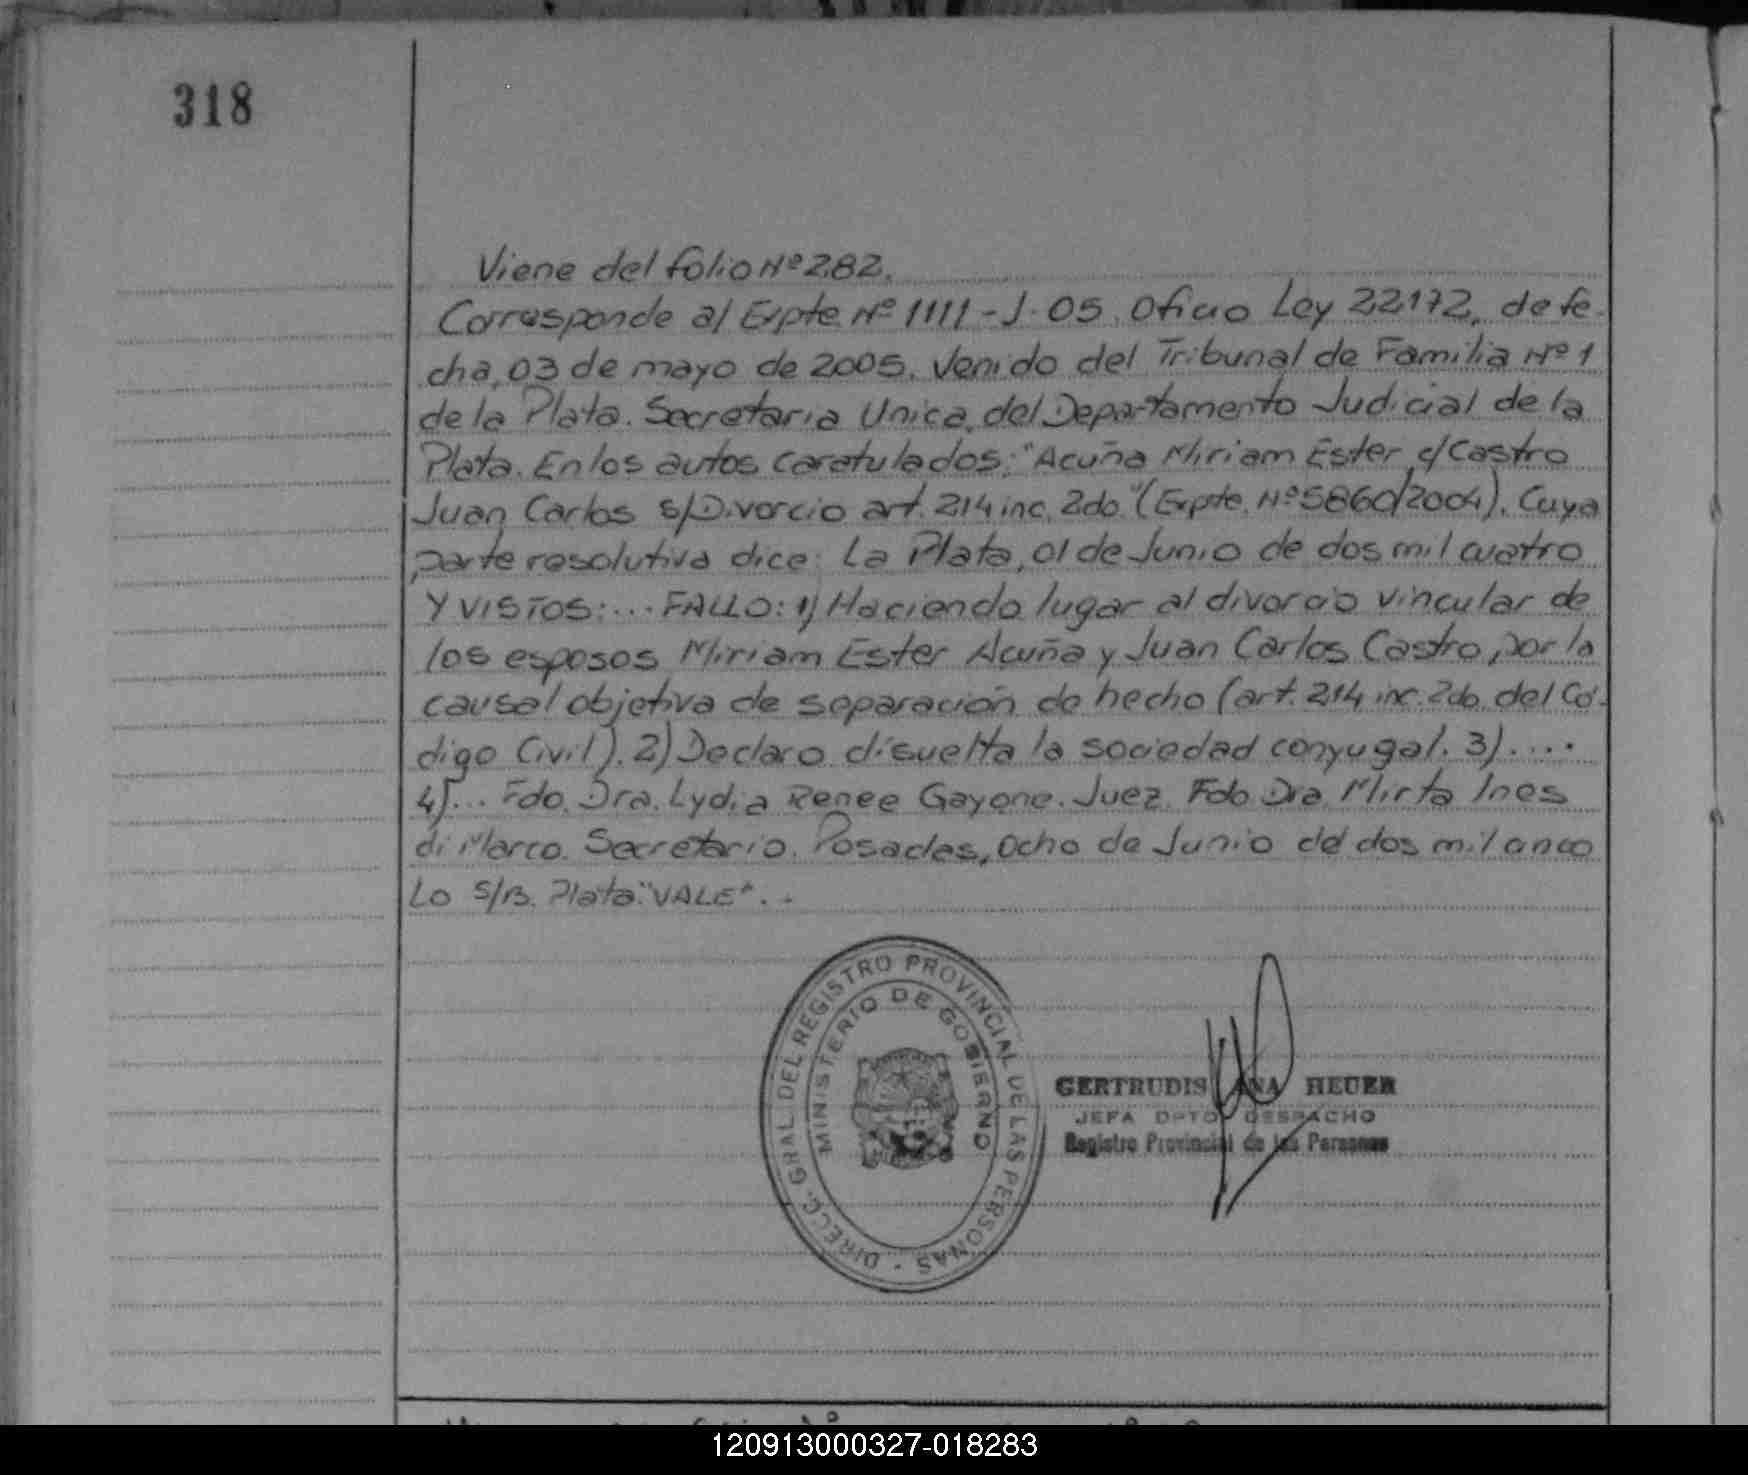 318
Viene del folio Nº 282.
Corresponde al Expte Nº 1111 - J - 05. Oficio Ley 22172, de fe-
cha, 03 de mayo de 2005. Venido del Tribunal de Familia Nº 1
de la Plata. Secretaria Unica, del Departamento Judicial de la
Plata. En los autos caratulados: "Acuña Miriam Ester c/ Castro
Juan Carlos s/ Divorcio art. 214 inc. 2do." (Expte. Nº 5860/2004). Cuya
parte resolutiva dice: La Plata, 01 de Junio de dos mil cuatro
Y VISTOS: ... FALLO: 1) Haciendo lugar al divorcio vincular de
los esposos Miriam Ester Acuña y Juan Carlos Castro, por la
causal objetiva de separación de hecho (art. 214 inc. 2do. del Có-
digo Civil). 2) Declaro disuelta la sociedad conyugal. 3) ....
4)... Fdo. Dra. Lydia Renee Gayone. Juez. Fdo Dra Mirta Ines
di Marco. Secretario. Posadas, Ocho de Junio del dos mil cinco
Lo S/B. Plata "VALE". -
DIRECC. GRAL. DEL REGISTRO PROVINCIAL DE LAS PERSONAS -
MINISTERIO DE GOBIERNO
GERTRUDIS ANA HEUER
JEFA DPTO DESPACHO
Registro Provincial de las Personas
120913000327-018283